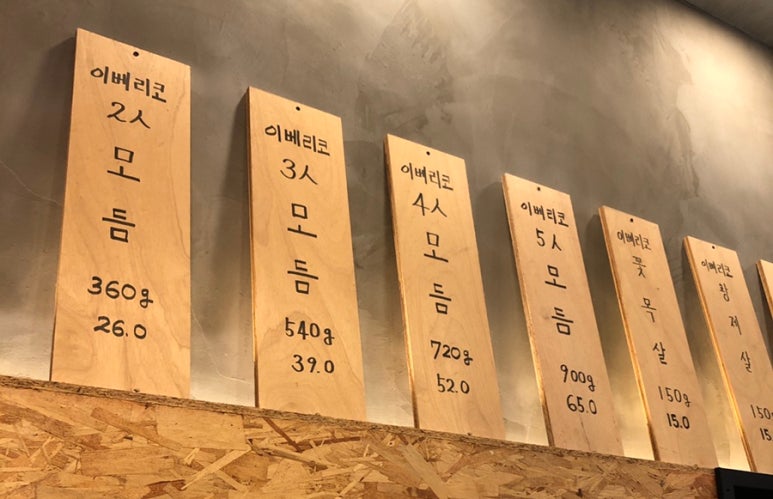 이베리코
2人
모
듬
360g
26.0
이베리코
3人
모
듬
540g
39.0
이베리코
4人
모
듬
720g
52.0
이베리코
5人
모
듬
900g
65.0
이베리코
꽃
목
살
150g
15.0
이베리코
황
제
살
150g
15